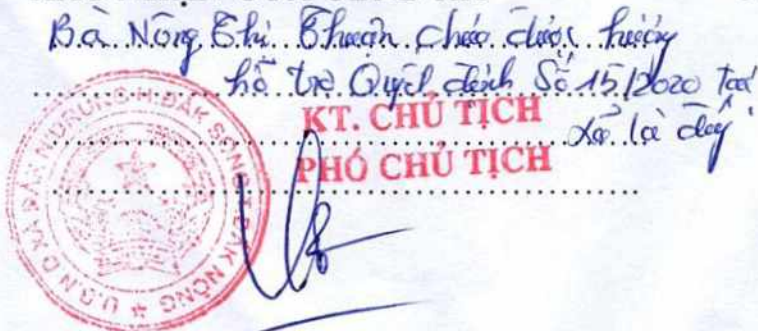 Bà Nông Thị Thuận chưa được hưởng
hỗ trợ Quyết định Số 15/2020 tại
xã là đúng
KT. CHỦ TỊCH
PHÓ CHỦ TỊCH
U.B.N.D XÃ ĐẮK N'DRUNG H. ĐẮK SONG T. ĐẮK NÔNG